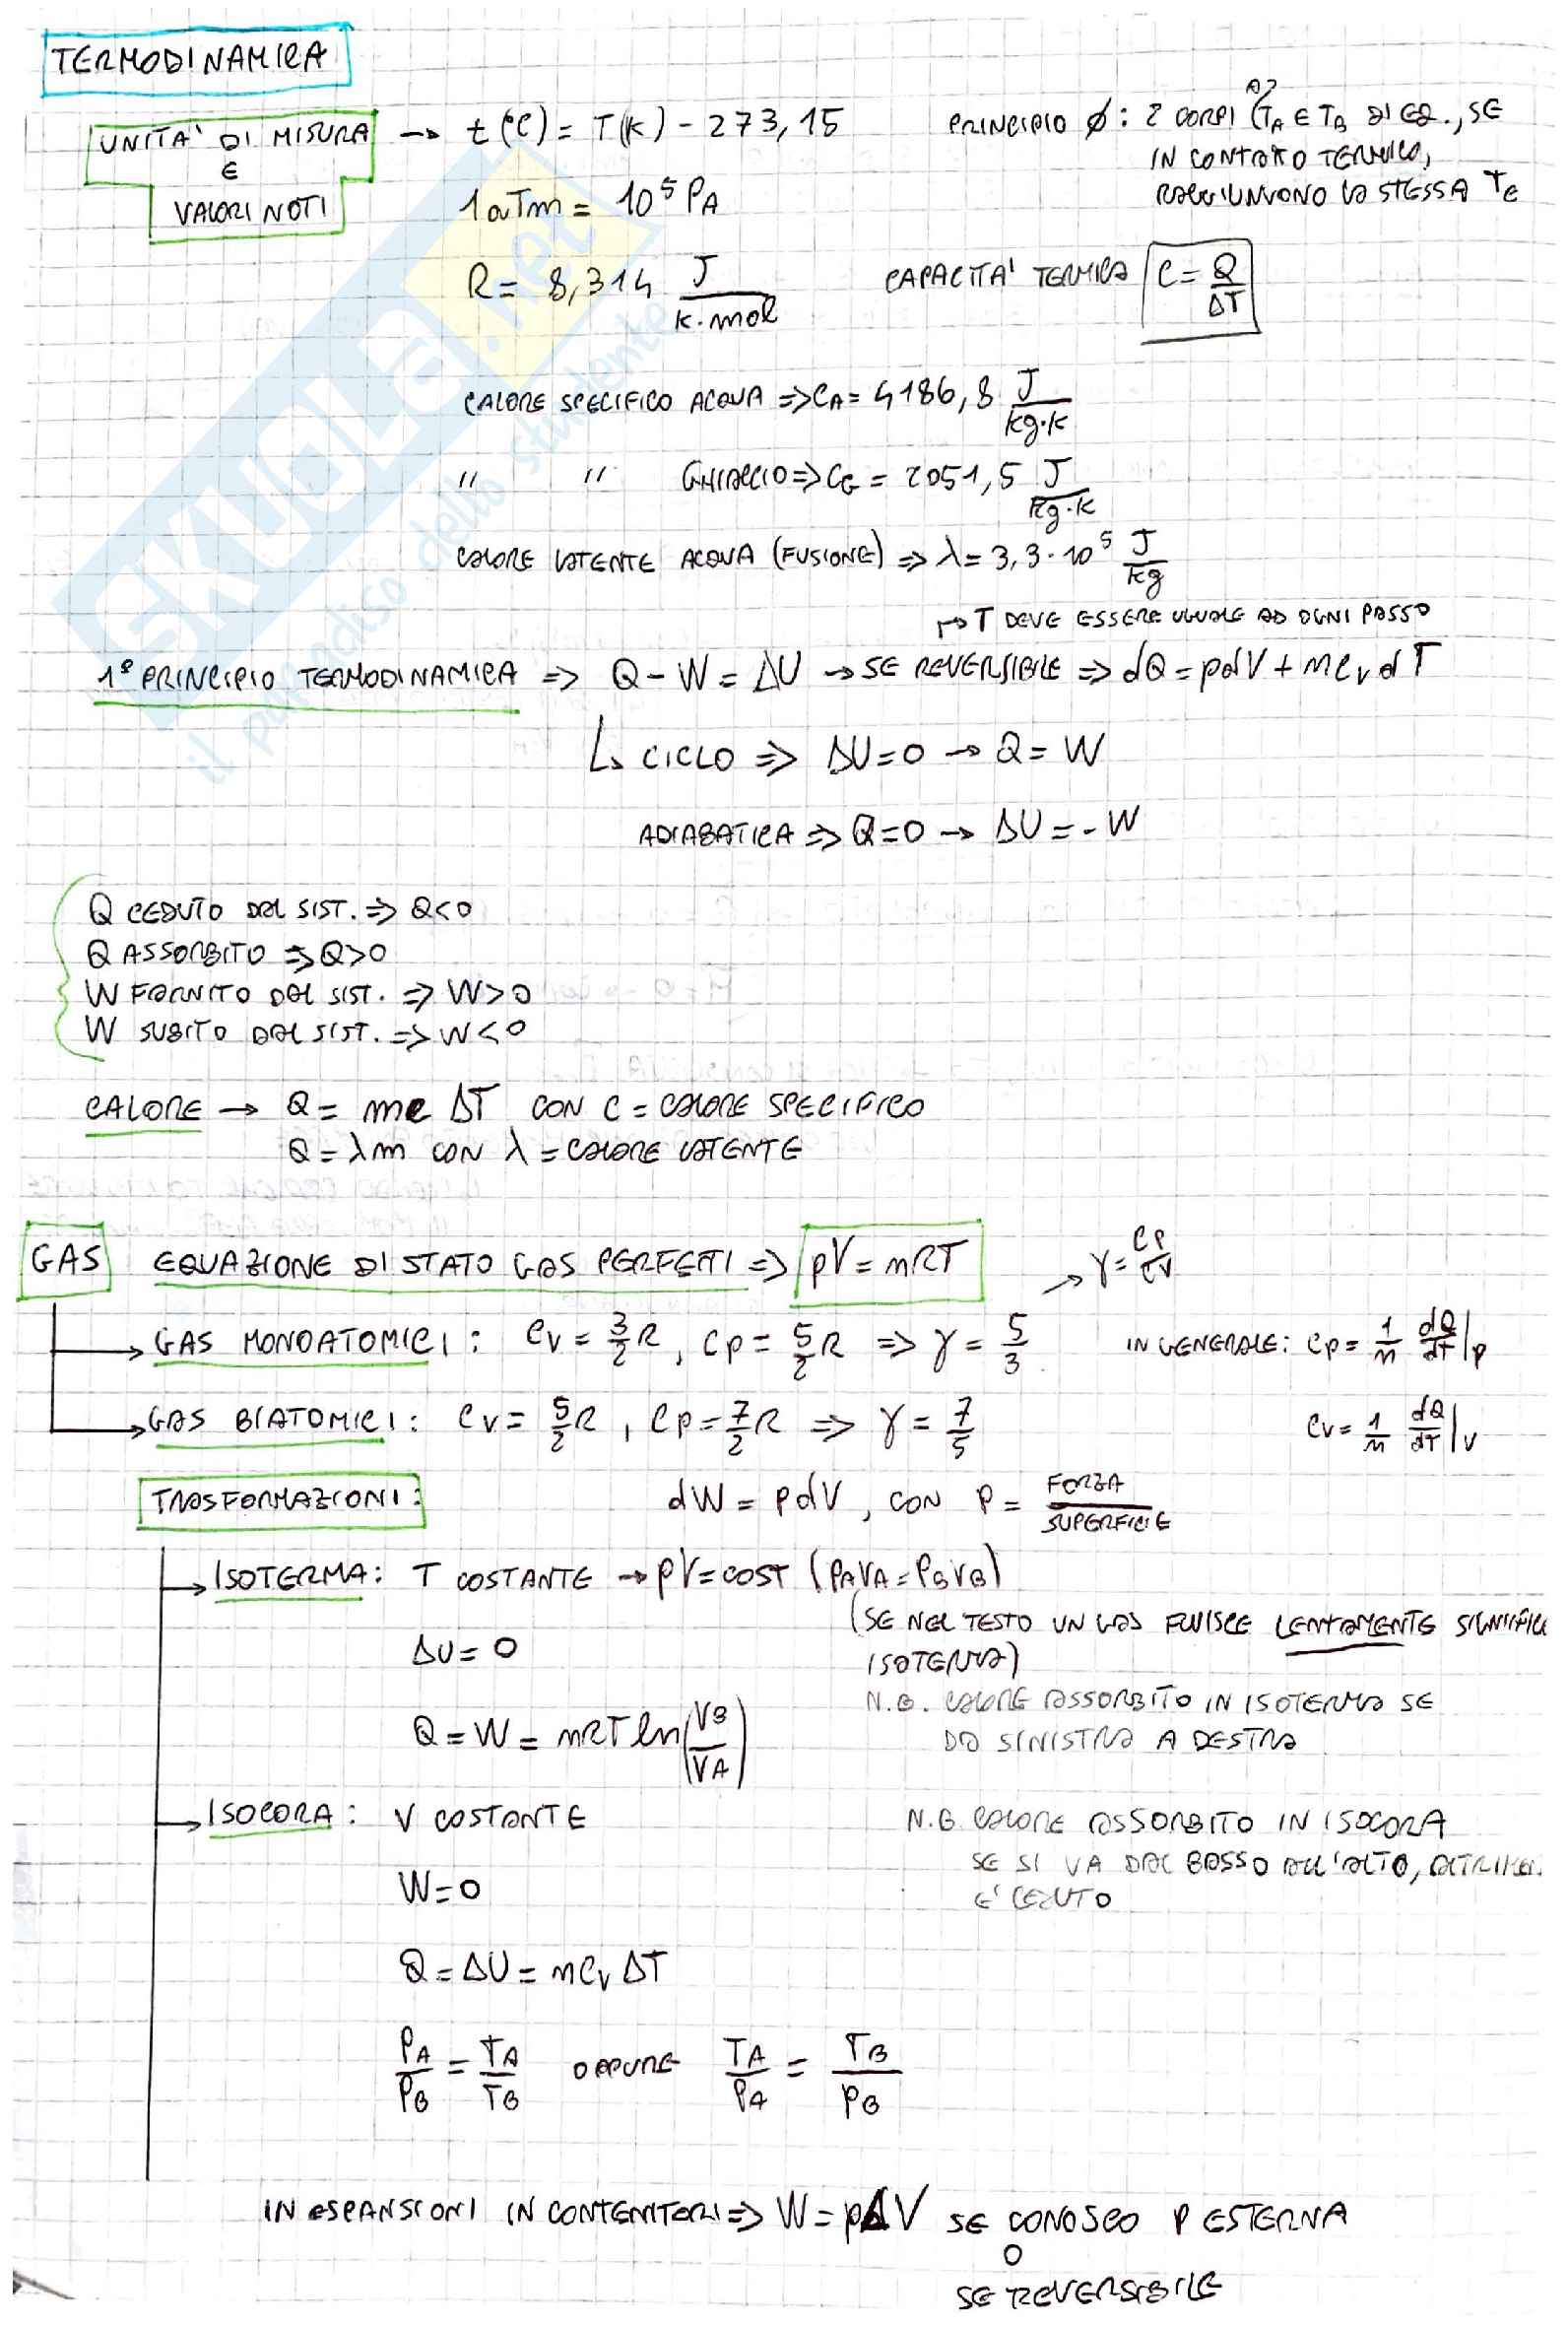 TERMODINAMICA
UNITA' DI MISURA E VALORI NOTI → t(°C) = T(K) - 273,15
1 aTm = 10⁵ PA
R = 8,314 J/K·mol
PRINCIPIO Ø: 2 CORPI A) (TA E TB DI EQ., SE
IN CONTATTO TERMICO,
RAGGIUNGONO LA STESSA Te
CAPACITA' TERMICA C = Q/ΔT
CALORE SPECIFICO ACQUA => CA = 4186,8 J/kg·K
" " GHIACCIO => CG = 2051,5 J/kg·K
CALORE LATENTE ACQUA (FUSIONE) => λ = 3,3·10⁵ J/kg
↱ T DEVE ESSERE UGUALE AD OGNI PASSO
1° PRINCIPIO TERMODINAMICA => Q - W = ΔU → SE REVERSIBILE => dQ = pdV + mcvdT
↳ CICLO => ΔU = 0 → Q = W
ADIABATICA => Q = 0 → ΔU = -W
Q CEDUTO DAL SIST. => Q<0
Q ASSORBITO => Q>0
W FORNITO DAL SIST. => W>0
W SUBITO DAL SIST. => W<0
CALORE → Q = mc ΔT CON C = CALORE SPECIFICO
Q = λm CON λ = CALORE LATENTE
GAS EQUAZIONE DI STATO GAS PERFETTI => pV = nRT → γ = cp/cv
→ GAS MONOATOMICI: cv = 3/2 R, cp = 5/2 R => γ = 5/3 IN GENERALE: cp = 1/n dQ/dT|p
→ GAS BIATOMICI: cv = 5/2 R, cp = 7/2 R => γ = 7/5 cv = 1/n dQ/dT|V
TRASFORMAZIONI: dW = pdV, CON P = FORZA/SUPERFICIE
→ ISOTERMA: T COSTANTE → pV = COST (PAVA = PBVB)
(SE NEL TESTO UN GAS FLUISCE LENTAMENTE SIGNIFICA
ISOTERMA)
ΔU = 0
N.B. CALORE ASSORBITO IN ISOTERMA SE
DA SINISTRA A DESTRA
Q = W = nRT ln(VB/VA)
→ ISOCORA: V COSTANTE
N.B CALORE ASSORBITO IN ISOCORA
SE SI VA DAL BASSO ALL'ALTO, ALTRIMEN.
E' CEDUTO
W = 0
Q = ΔU = nCV ΔT
PA/PB = TA/TB OPPURE TA/PA = TB/PB
IN ESPANSIONI IN CONTENITORI => W = pΔV SE CONOSCO P ESTERNA
O
SE REVERSIBILE
SKUOLA.net
il paradiso dello studente